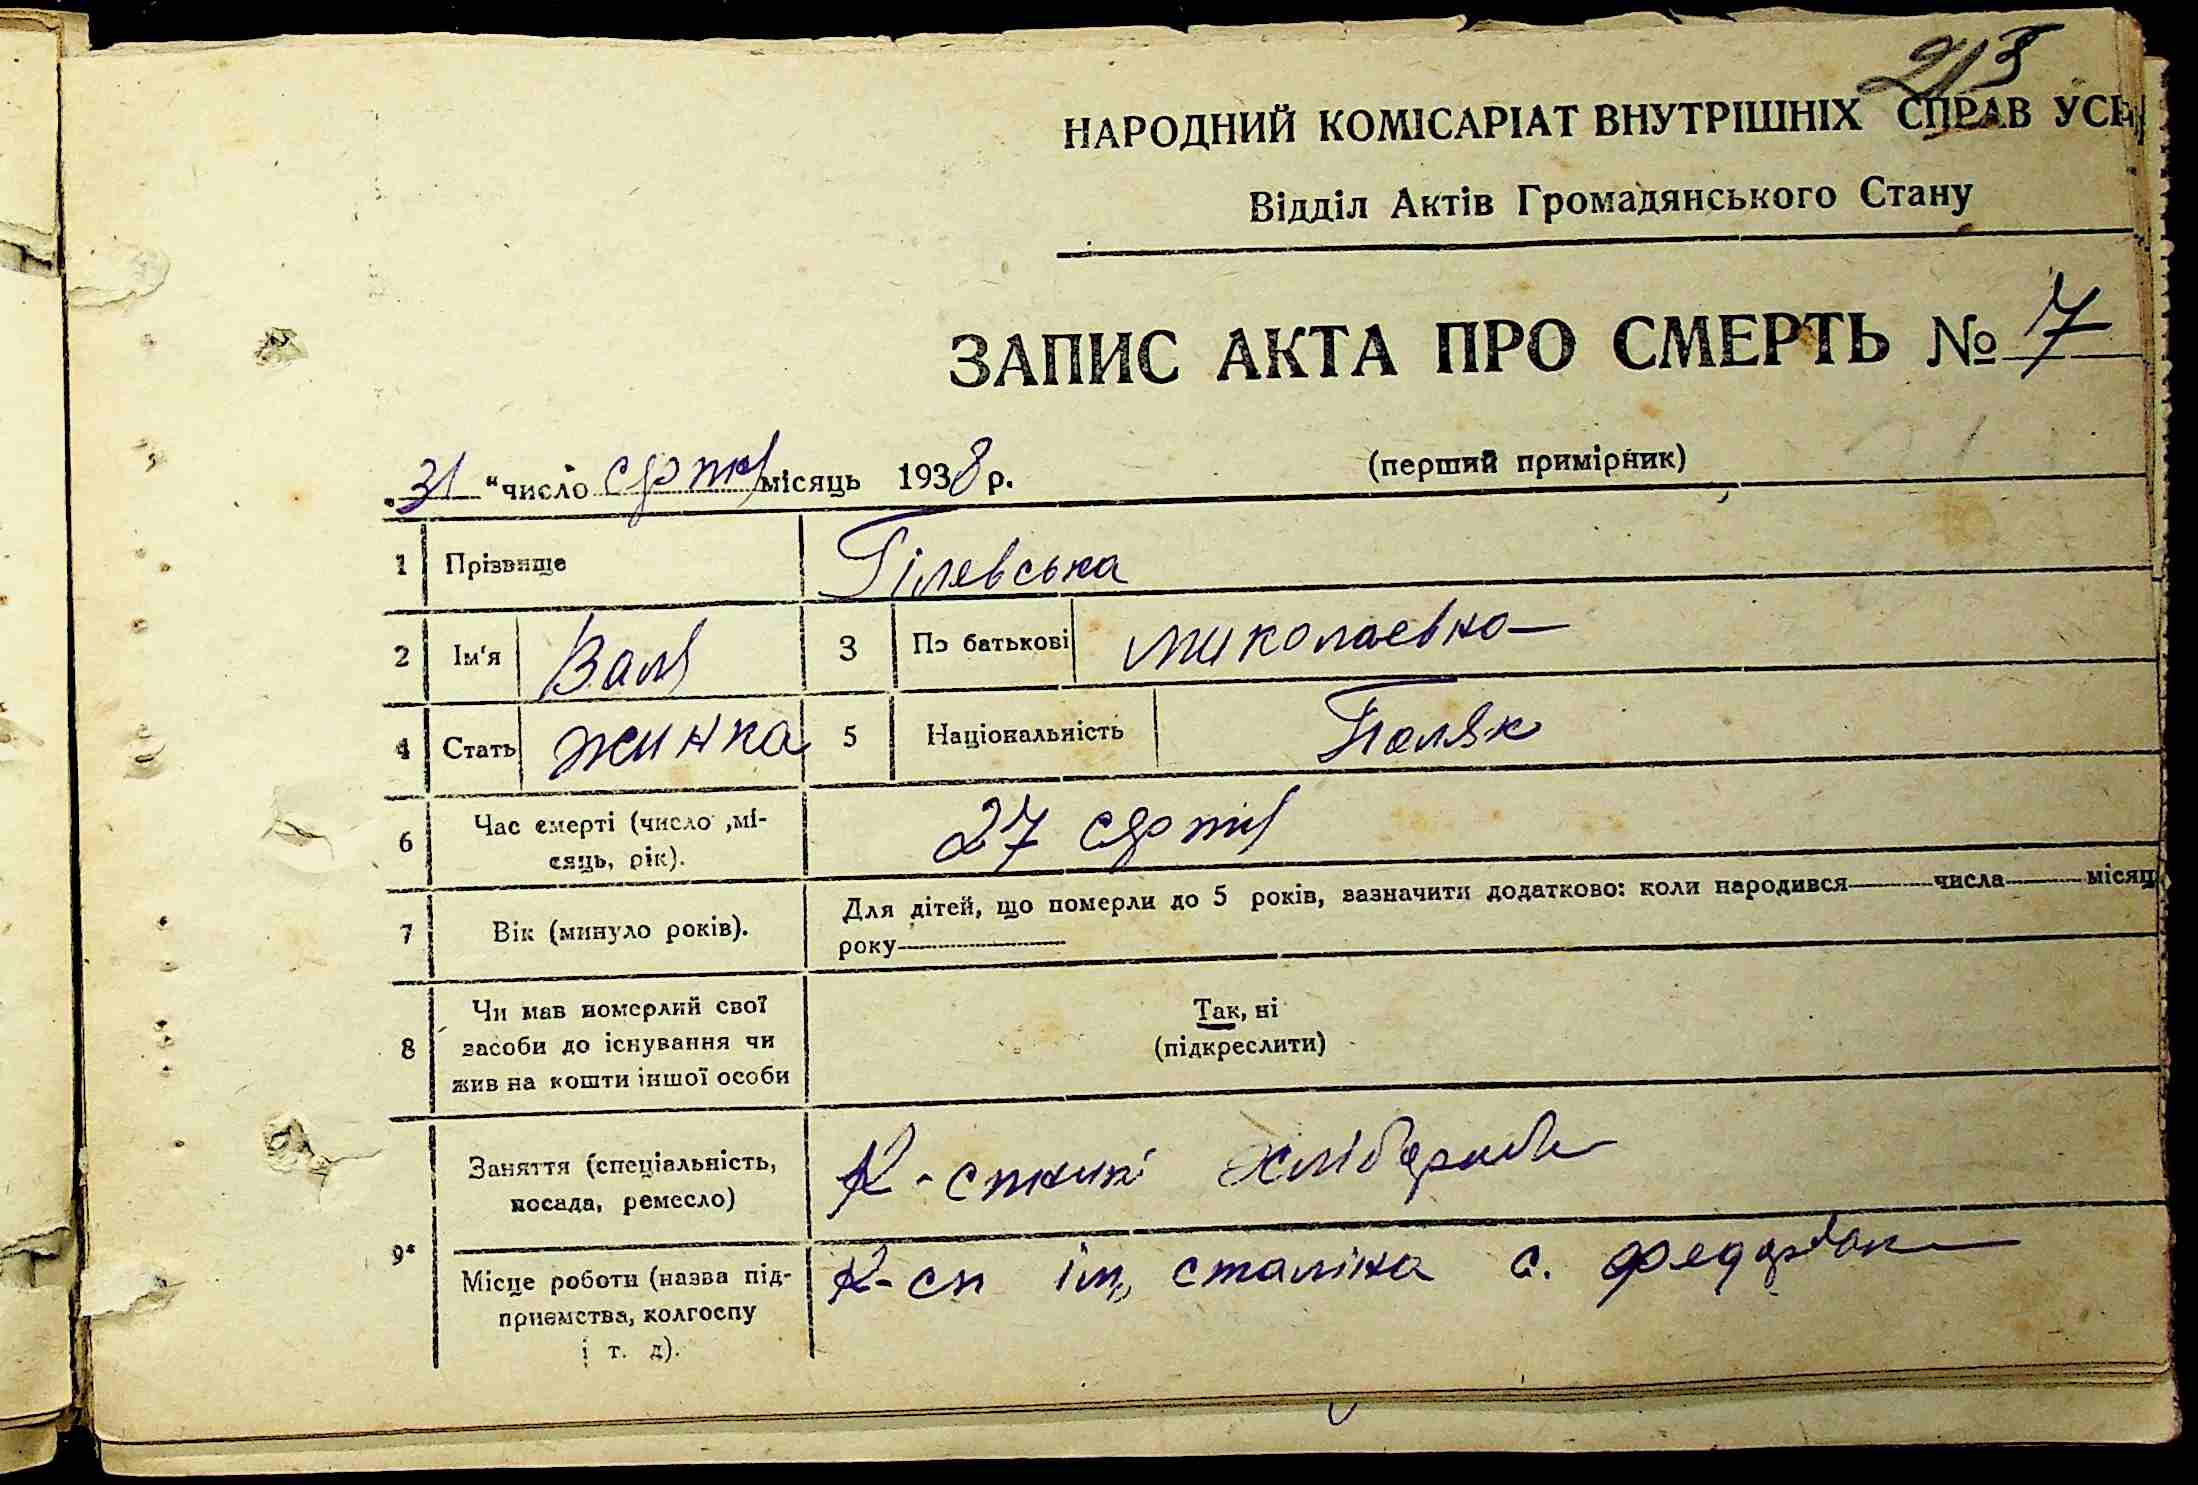 213
НАРОДНИЙ КОМІСАРІАТ ВНУТРІШНІХ СПРАВ УСР
Відділ Актів Громадянського Стану
ЗАПИС АКТА ПРО СМЕРТЬ № 7
(перший примірник)
„31 “ число місяць 1938 р.
1 Прізвище Гілевська
2 Ім'я Валя 3 По батькові Миколаевна
4 Стать жинка 5 Національність Поляк
6 Час смерті (число ,мі-
сяць, рік). 27
7 Вік (минуло років). Для дітей, що померли до 5 років, зазначити додатково: коли народився числа місяц
року
8 Чи мав померлий свої
засоби до існування чи
жив на кошти іншої особи
Так, ні
(підкреслити)
9* Заняття (спеціальність,
посада, ремесло) К-спник
Місце роботи (назва під-
приємства, колгоспу
і т. д). К-сп ім. сталіна с.